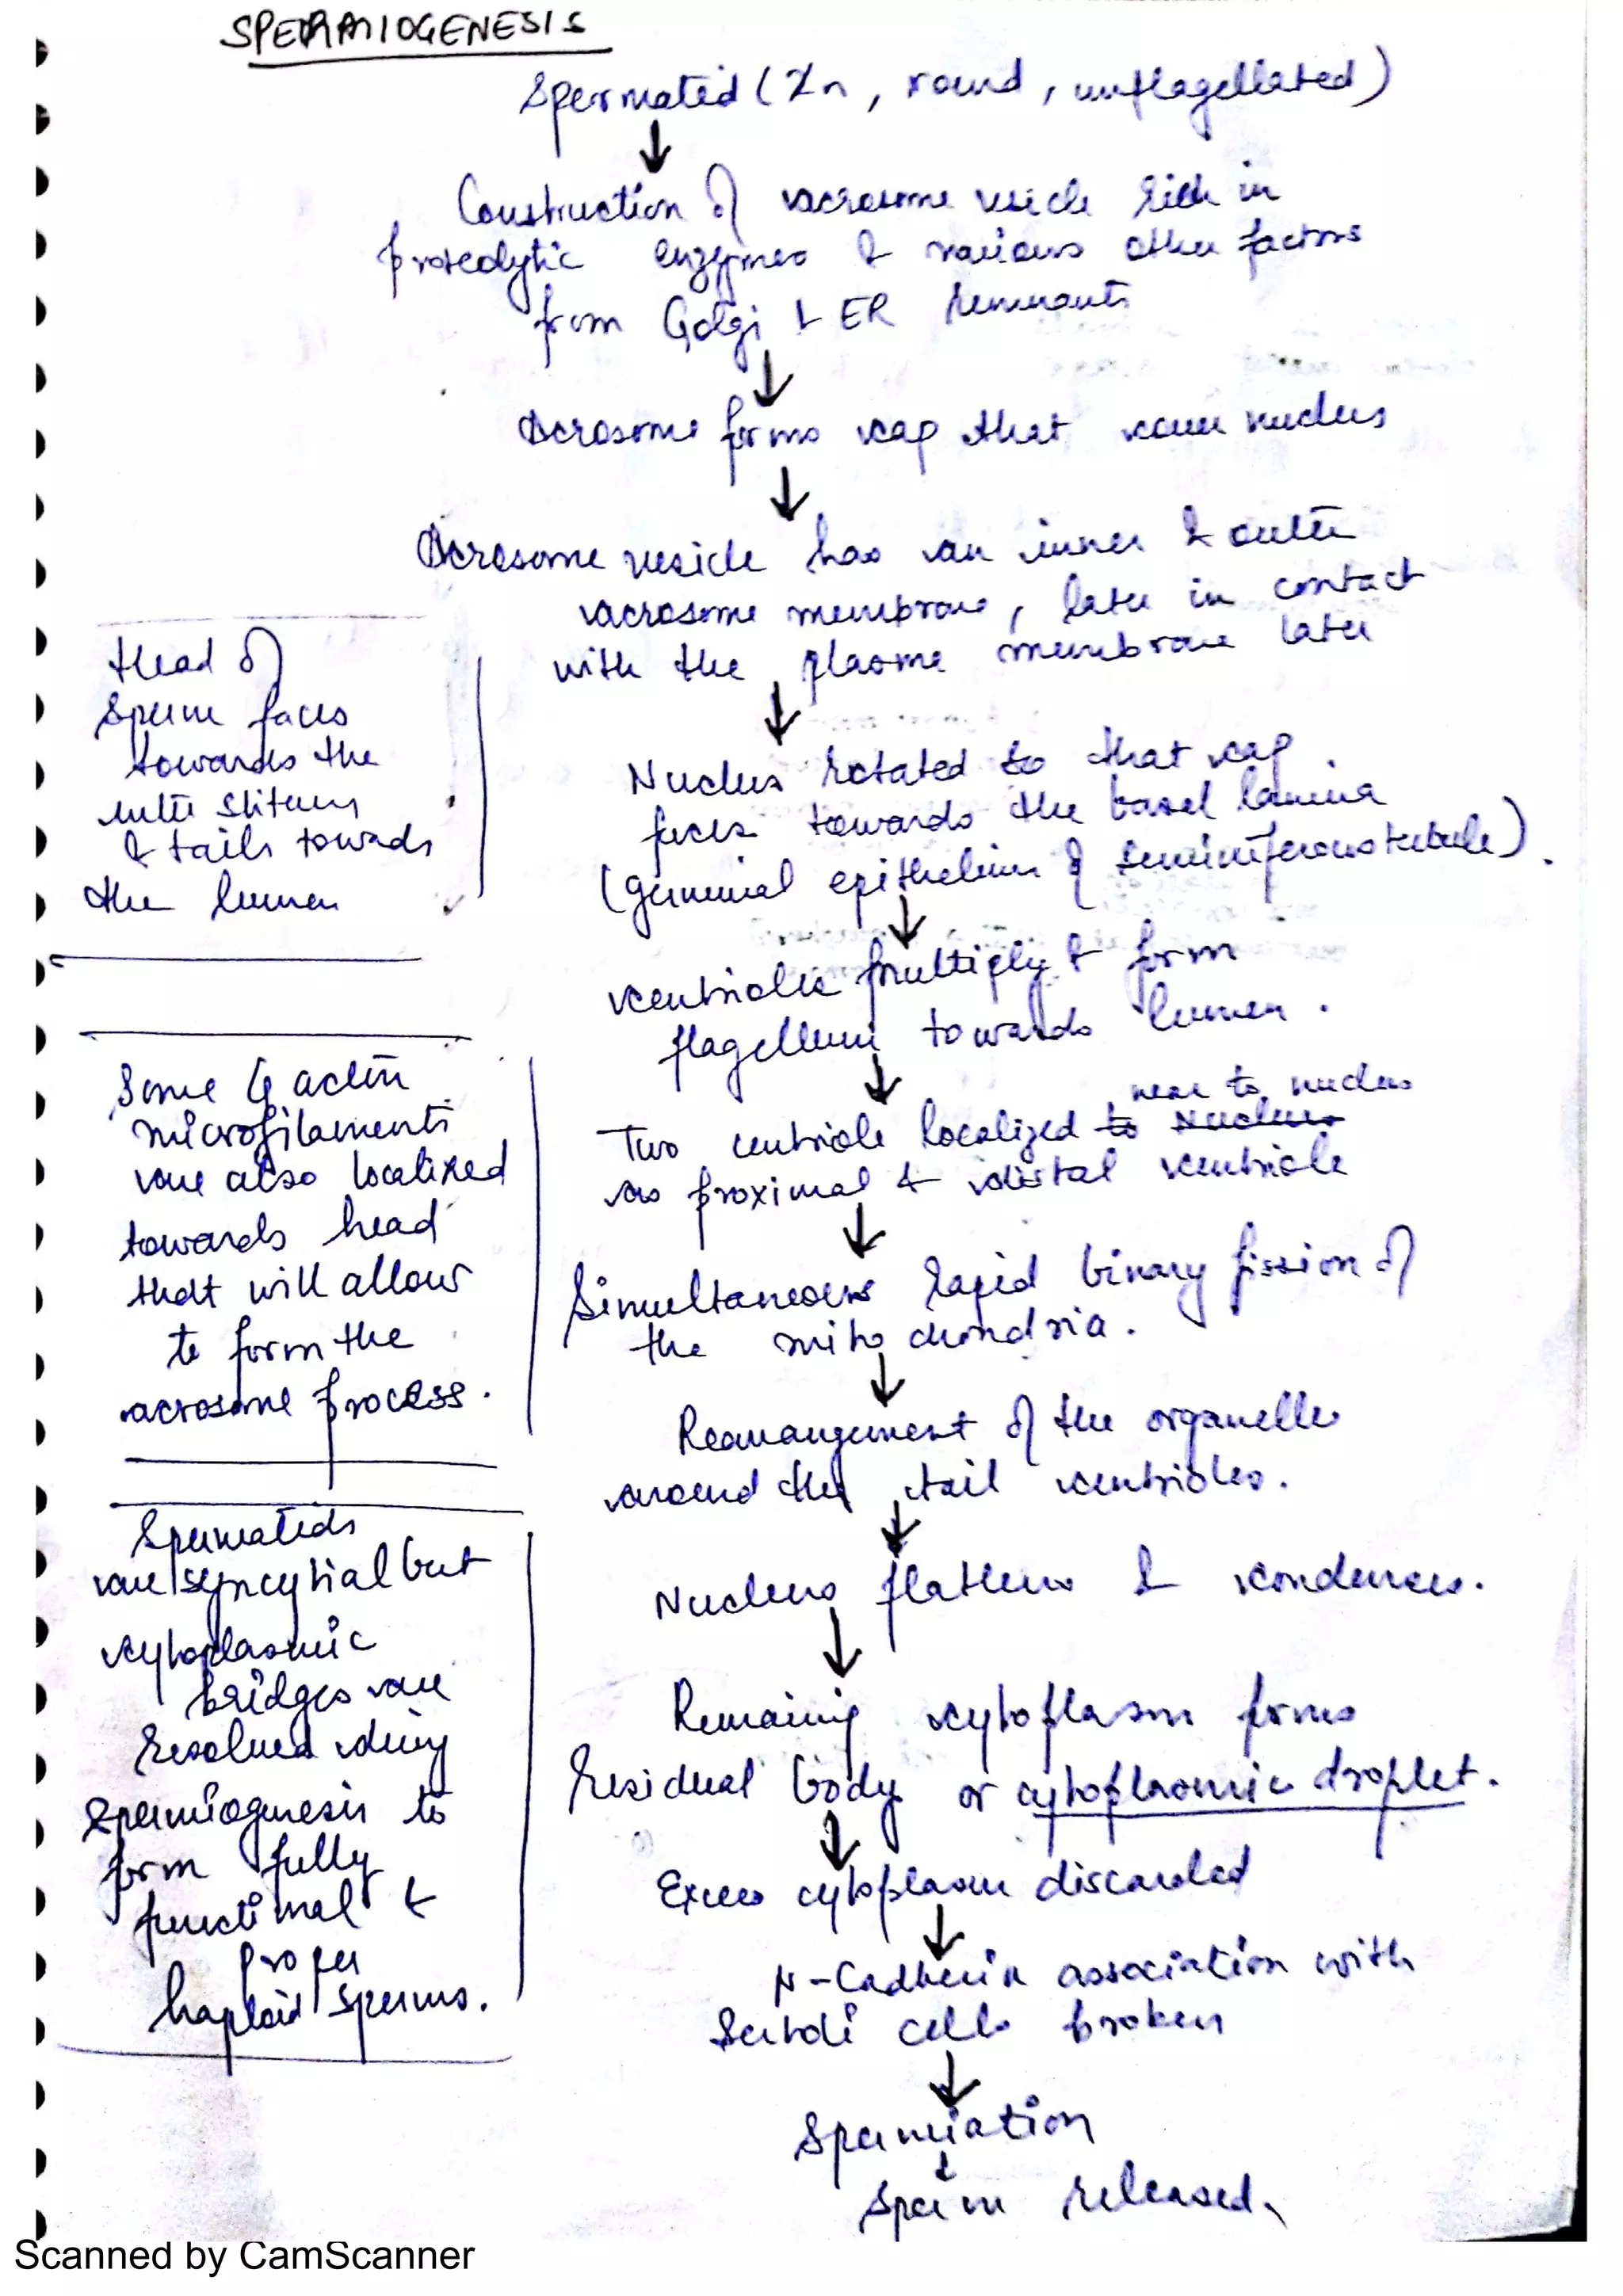 SPERMIOGENESIS
Spermatid (2n, round, unflagellated)
↓
Construction of acrosome vesicle rich in
proteolytic enzymes & various other factors
from Golgi & ER remnants
↓
Acrosome forms cap that cover nucleus
↓
Acrosome vesicle has an inner & outer
acrosome membrane, later in contact
with the plasma membrane later
↓
Nucleus rotated so that cap
faces towards the basal lamina
(germinal epithelium of seminiferous tubule).
↓
centrioles multiply & form
flagellum towards lumen.
↓
near to nucleus
Two centriole localized to Nucleus
as proximal & distal centriole
↓
Simultaneous rapid binary fission of
the mitochondria.
↓
Rearrangement of the organelles
around the tail centrioles.
↓
Nucleus flattens & condenses.
↓
Remaining cytoplasm forms
residual body or cytoplasmic droplet.
↓
Excess cytoplasm discarded
↓
N-Cadherin association with
Sertoli cells broken
↓
Spermiation
↓
Sperm released.
Head of
sperm faces
towards the
& tails towards
the lumen
Some G actin
microfilaments
are also localized
towards head
that will allow
to form the
acrosome process.
Spermatids
are syncytial but
cytoplasmic
bridges are
resolved during
spermiogenesis to
form fully
functional &
proper
haploid sperms.
Scanned by CamScanner